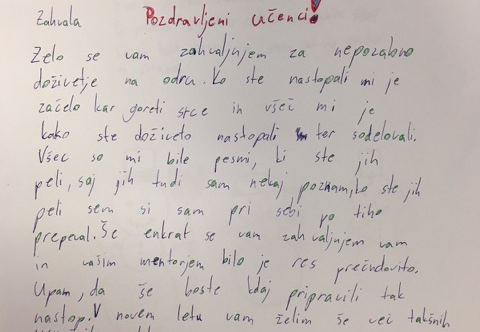 Zahvala
Pozdravljeni učenci!
Zelo se vam zahvaljujem za nepozabno
doživetje na odru. Ko ste nastopali mi je
začelo kar goreti srce in všeč mi je
kako ste doživeto nastopali ter sodelovali.
Všeč so mi bile pesmi, ki ste jih
peli, saj jih tudi sam nekaj poznam, ko ste jih
peli sem si sam pri sebi po tiho
prepeval. Še enkrat se vam zahvaljujem vam
in vašim mentorjem bilo je res prečudovito.
Upam, da še boste kdaj pripravili tak
nastop. V novem letu vam želim še več takšnih